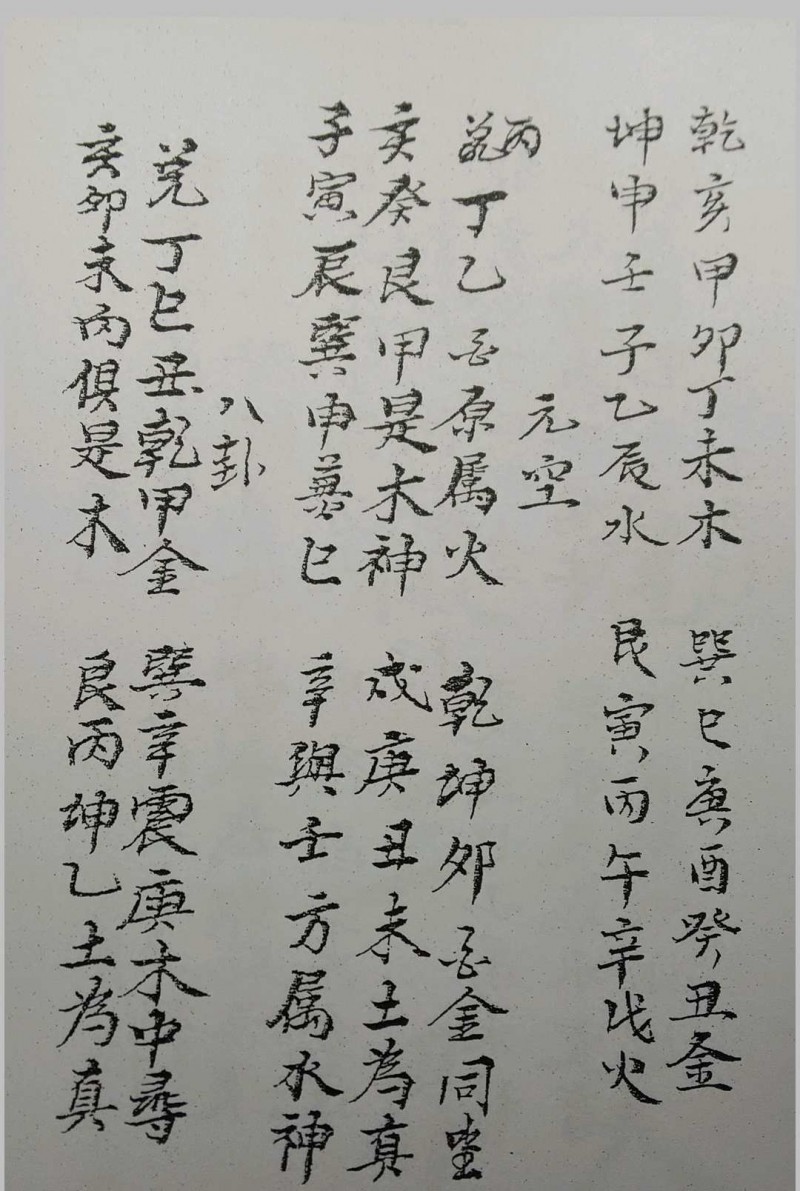 乾亥甲卯丁未木 巽巳庚酉癸丑金
坤申壬子乙辰水 艮寅丙午辛戌火
元空
丙丁乙原属火 乾坤卯金同坐
亥癸艮甲是木神 戌庚丑未土為真
子寅辰巽申兼巳 辛與壬方属水神
八卦
兑丁巳丑乾甲金 巽辛震庚木中尋
亥卯未内俱是木 艮丙坤乙土為真